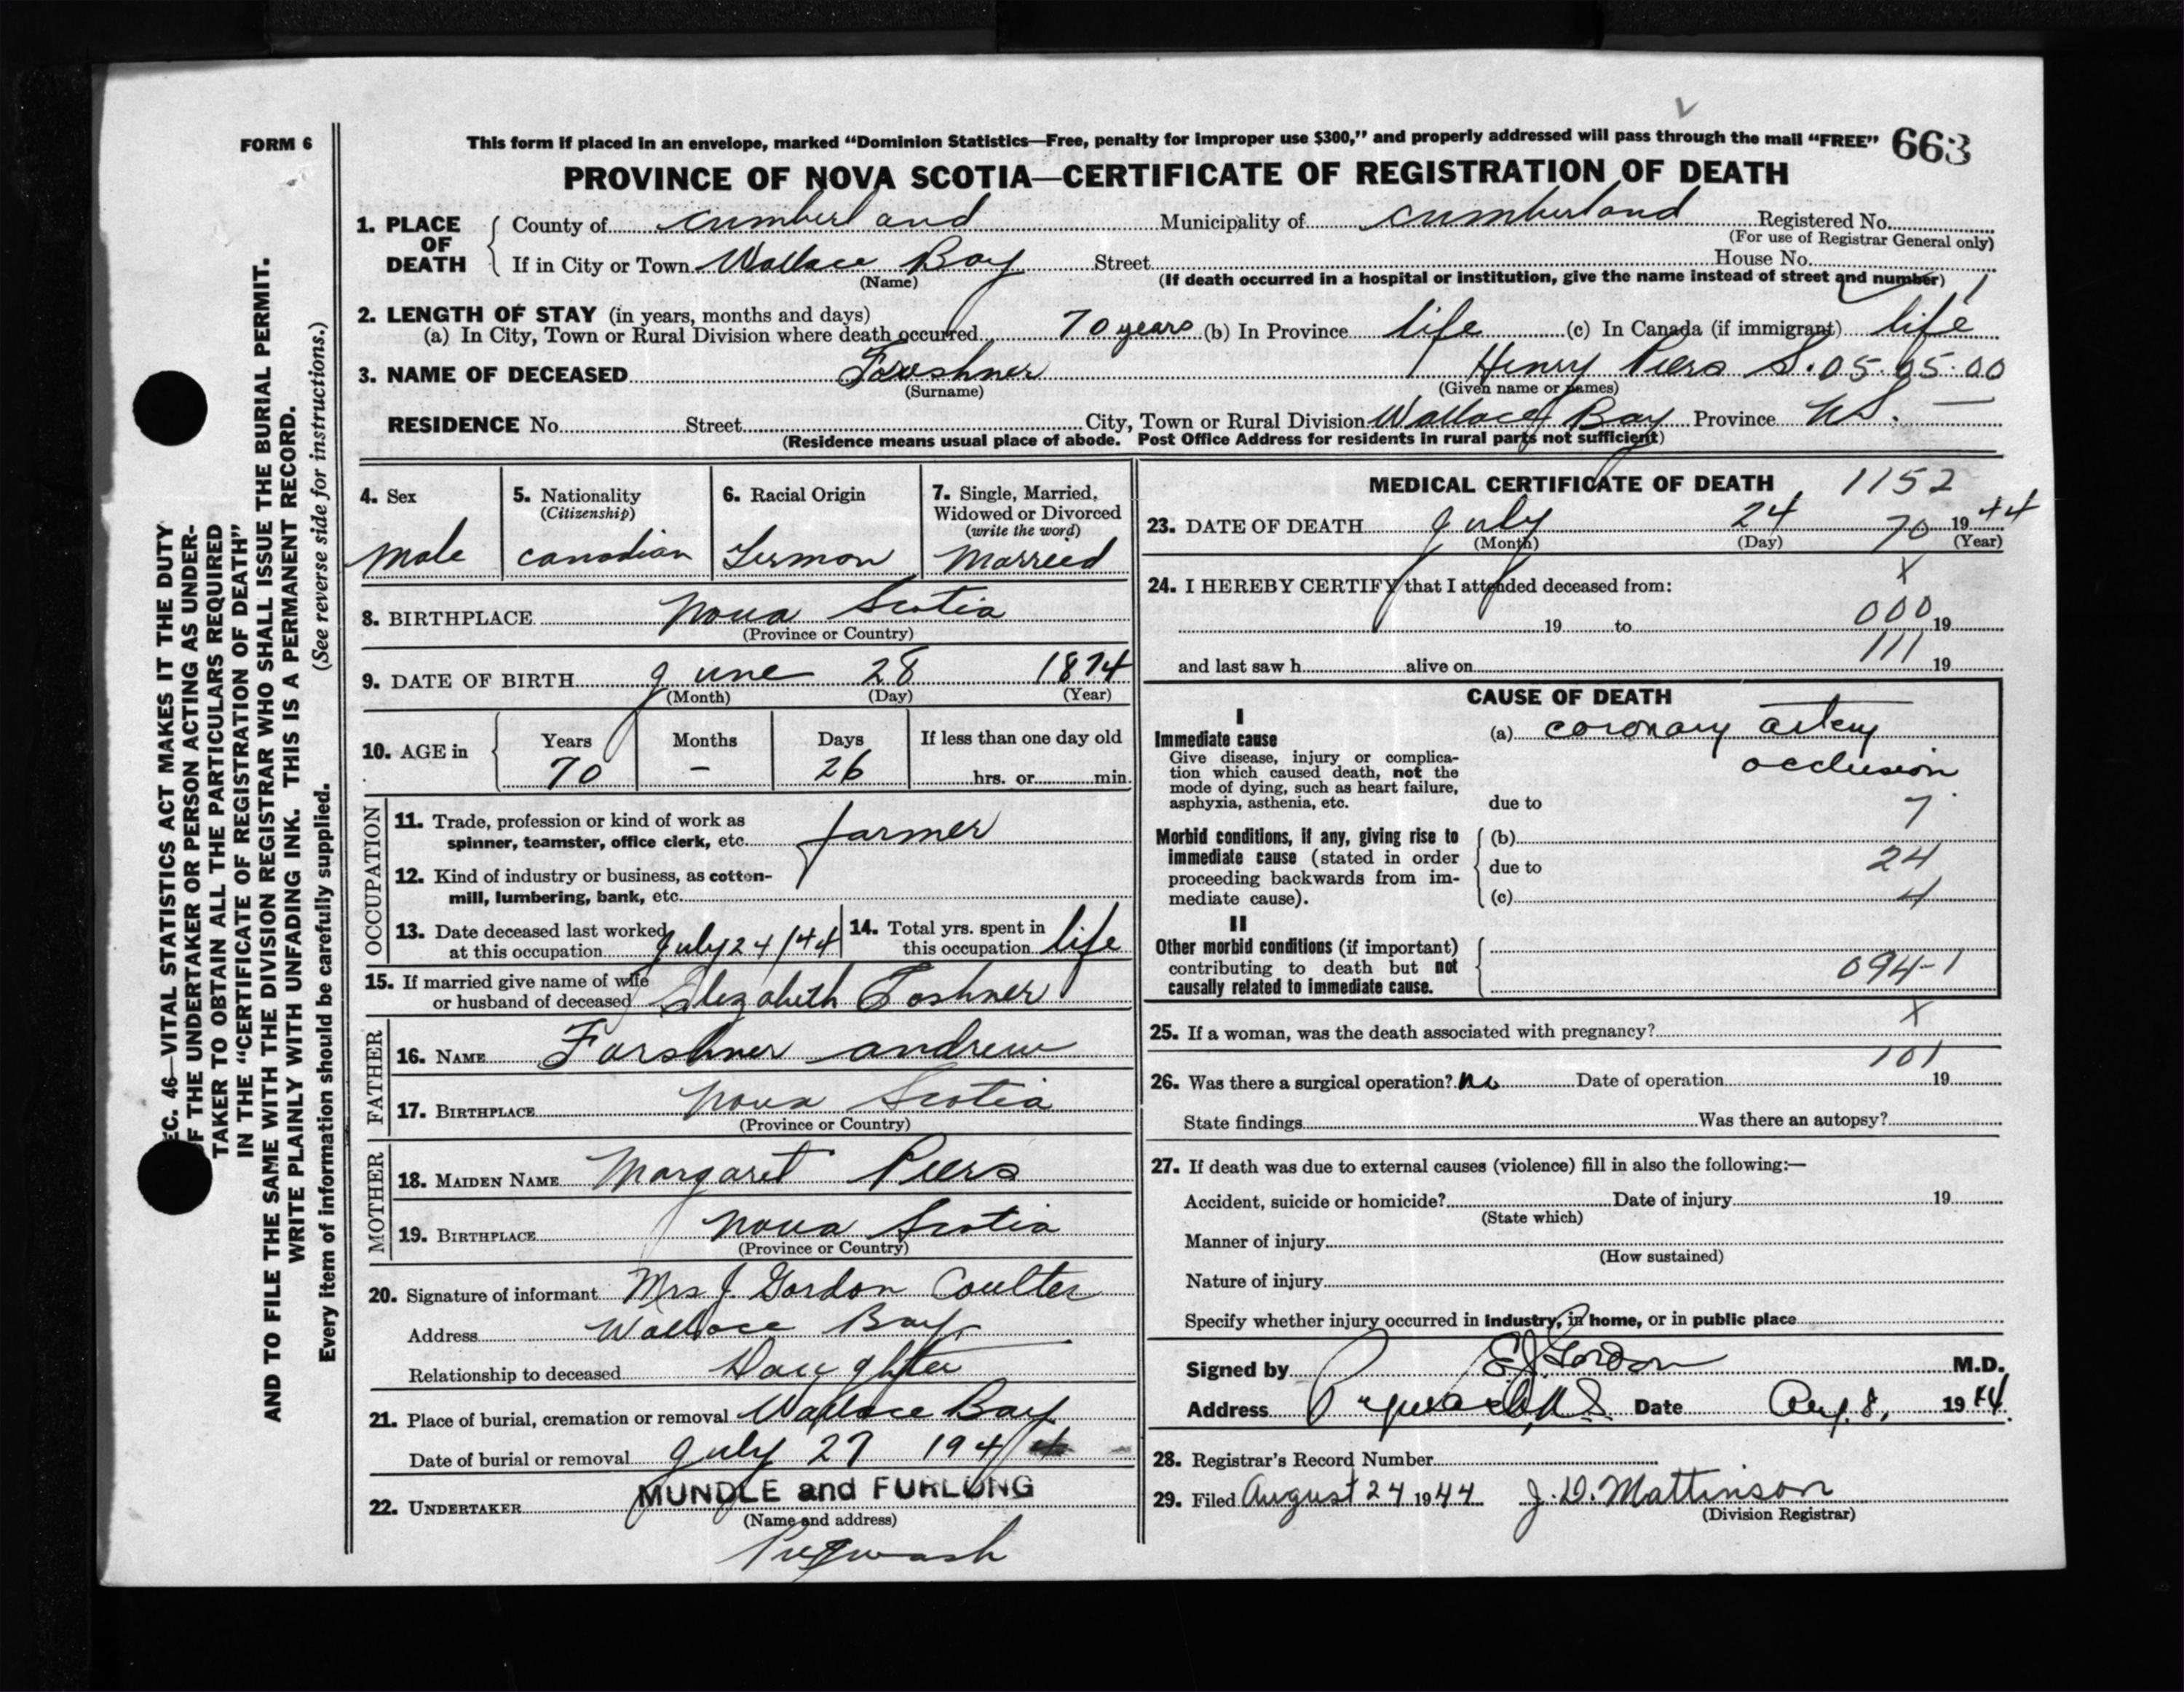 FORM 6
This form if placed in an envelope, marked “Dominion Statistics—Free, penalty for improper use $300,” and properly addressed will pass through the mail “FREE” 663
PROVINCE OF NOVA SCOTIA—CERTIFICATE OF REGISTRATION OF DEATH
1. PLACE OF DEATH
County of Cumberland Municipality of Cumberland Registered No.
(For use of Registrar General only)
If in City or Town Wallace Bay Street House No.
(Name) (If death occurred in a hospital or institution, give the name instead of street and number)
2. LENGTH OF STAY (in years, months and days)
(a) In City, Town or Rural Division where death occurred 70 years (b) In Province life (c) In Canada (if immigrant) life
3. NAME OF DECEASED Henry Piers S. 05.05.00
(Surname) (Given name or names)
RESIDENCE No. Street City, Town or Rural Division Wallace Bay Province N.S.
(Residence means usual place of abode. Post Office Address for residents in rural parts not sufficient)
4. Sex
Male
5. Nationality
(Citizenship)
Canadian
6. Racial Origin
German
7. Single, Married,
Widowed or Divorced
(write the word)
Marreed
8. BIRTHPLACE Nova Scotia
(Province or Country)
9. DATE OF BIRTH June 28 1874
(Month) (Day) (Year)
10. AGE in Years Months Days If less than one day old
70 – 26 hrs. or min.
OCCUPATION
11. Trade, profession or kind of work as
spinner, teamster, office clerk, etc. farmer
12. Kind of industry or business, as cotton-
mill, lumbering, bank, etc.
13. Date deceased last worked
at this occupation July 24/44
14. Total yrs. spent in
this occupation life
15. If married give name of wife
or husband of deceased Elezabeth Foshner
FATHER
16. NAME Forshner Andrew
17. BIRTHPLACE Nova Scotia
(Province or Country)
MOTHER
18. MAIDEN NAME Margaret Piers
19. BIRTHPLACE Nova Scotia
(Province or Country)
20. Signature of informant Mrs J. Gordon Coulter
Address Wallace Bay
Relationship to deceased Daughter
21. Place of burial, cremation or removal Wallace Bay
Date of burial or removal July 27 1944
22. UNDERTAKER MUNDLE and FURLONG
(Name and address)
Pugwash
MEDICAL CERTIFICATE OF DEATH 1152
23. DATE OF DEATH July 24 70 1944
(Month) (Day) (Year)
24. I HEREBY CERTIFY that I attended deceased from: X
19 to 000 19
and last saw h alive on 111 19
CAUSE OF DEATH
I
Immediate cause
Give disease, injury or complica-
tion which caused death, not the
mode of dying, such as heart failure,
asphyxia, asthenia, etc.
(a) coronary artery
occlusion
due to 7
Morbid conditions, if any, giving rise to
immediate cause (stated in order
proceeding backwards from im-
mediate cause).
(b)
due to 24
(c) 4
II
Other morbid conditions (if important)
contributing to death but not
causally related to immediate cause.
094-1
25. If a woman, was the death associated with pregnancy? X
101
26. Was there a surgical operation? No Date of operation 19
State findings Was there an autopsy?
27. If death was due to external causes (violence) fill in also the following:—
Accident, suicide or homicide? Date of injury 19
(State which)
Manner of injury
(How sustained)
Nature of injury
Specify whether injury occurred in industry, in home, or in public place
Signed by E J Gordon M.D.
Address Pugwash, N.S. Date Aug. 8, 1944.
28. Registrar's Record Number
29. Filed August 24 1944 J. D. Mattinson
(Division Registrar)
EC. 46—VITAL STATISTICS ACT MAKES IT THE DUTY
F THE UNDERTAKER OR PERSON ACTING AS UNDER-
TAKER TO OBTAIN ALL THE PARTICULARS REQUIRED
IN THE “CERTIFICATE OF REGISTRATION OF DEATH”
AND TO FILE THE SAME WITH THE DIVISION REGISTRAR WHO SHALL ISSUE THE BURIAL PERMIT.
WRITE PLAINLY WITH UNFADING INK. THIS IS A PERMANENT RECORD.
Every item of information should be carefully supplied. (See reverse side for instructions.)